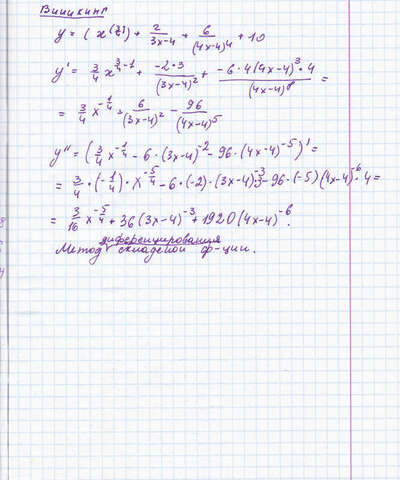 Виuикинг
y = ( x^(3/4) ) + 2/(3x-4) + 6/(4x-4)^4 + 10
y' = 3/4 x^(3/4-1) + (-2·3)/(3x-4)^2 + (-6·4(4x-4)^3·4)/(4x-4)^8 =
= 3/4 x^(-1/4) - 6/(3x-4)^2 - 96/(4x-4)^5
y'' = (3/4 x^(-1/4) - 6·(3x-4)^(-2) - 96·(4x-4)^(-5))' =
= 3/4·(-1/4)·x^(-5/4) - 6·(-2)·(3x-4)^(-3)·3 - 96·(-5)(4x-4)^(-6)·4 =
= 3/16 x^(-5/4) + 36(3x-4)^(-3) + 1920(4x-4)^(-6).
диференцирования
Метод складной ф-ции.